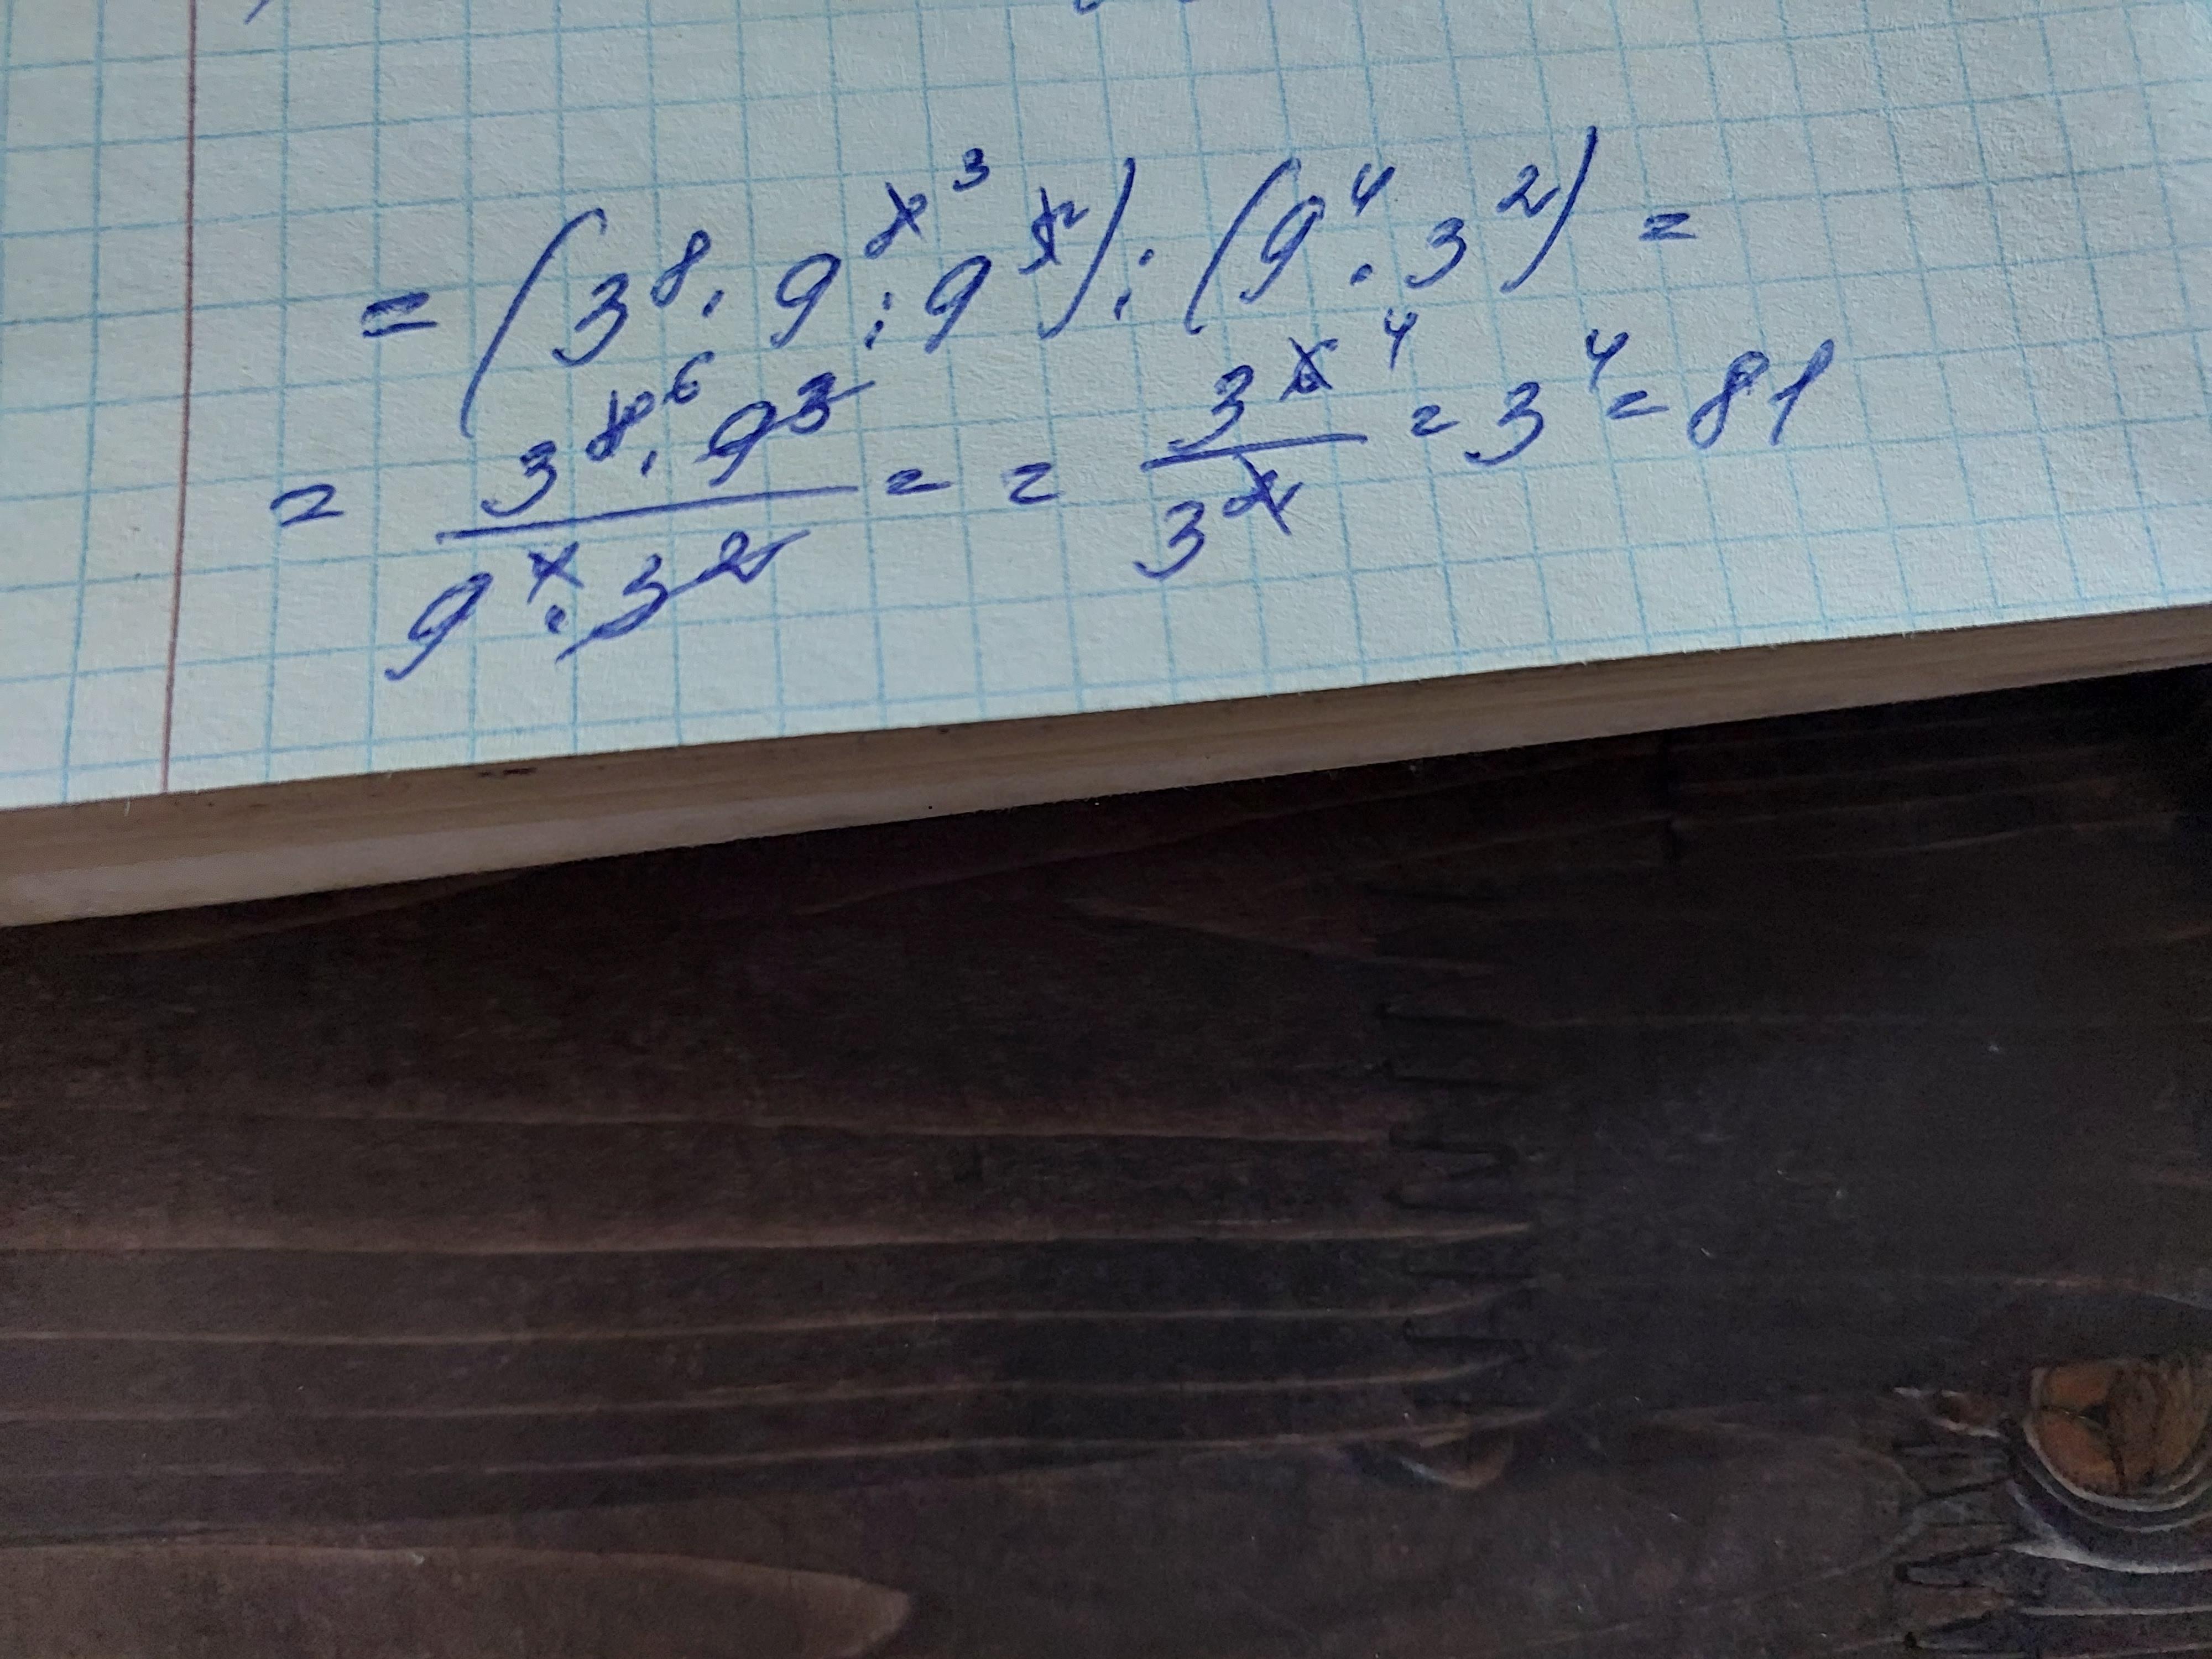 = (3⁸ · 9⁸ ³ : 9⁵) : (9⁴ · 3²) =
= 3⁸ ⁶ · 9³ / 9⁴ · 3² = = 3⁶ ⁴ / 3² = 3⁴ = 81